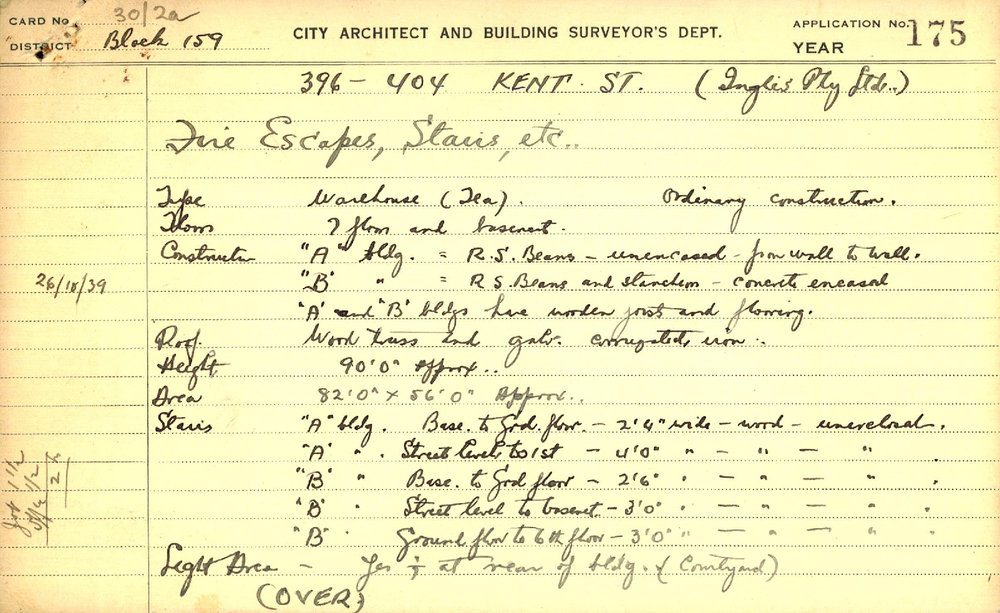 CARD No 30/2a
DISTRICT Block 159
CITY ARCHITECT AND BUILDING SURVEYOR'S DEPT.
APPLICATION No. 175
YEAR
396 - 404 KENT ST. (Inglis Pty Ltd..)
Fire Escapes, Stairs, etc..
Type Warehouse (Tea). Ordinary construction.
Floors 7 floors and basement.
Constructn "A" bldg. = R.S. Beams - unencased - from wall to wall.
26/10/39
"B" " = R S. Beams and stanchions - concrete encased
"A" and "B" bldgs have wooden joists and flooring.
Roof. Wood truss and galv. corrugated iron..
Height 90'0" Approx..
Area 82'0" x 56'0" Approx..
Stairs "A" bldg. Base. to Grd. floor. - 2'4" wide - wood - unenclosed.
"A" " . Street level to 1st - 4'0" " - " - " .
"B" " Base. to Grd floor - 2'6" " - " - " .
"B" " Street level to basemt. - 3'0" " - " - " .
"B" " Ground floor to 6th floor - 3'0" " - " - " .
Light Area - Yes at rear of bldg. (Courtyard)
(OVER)